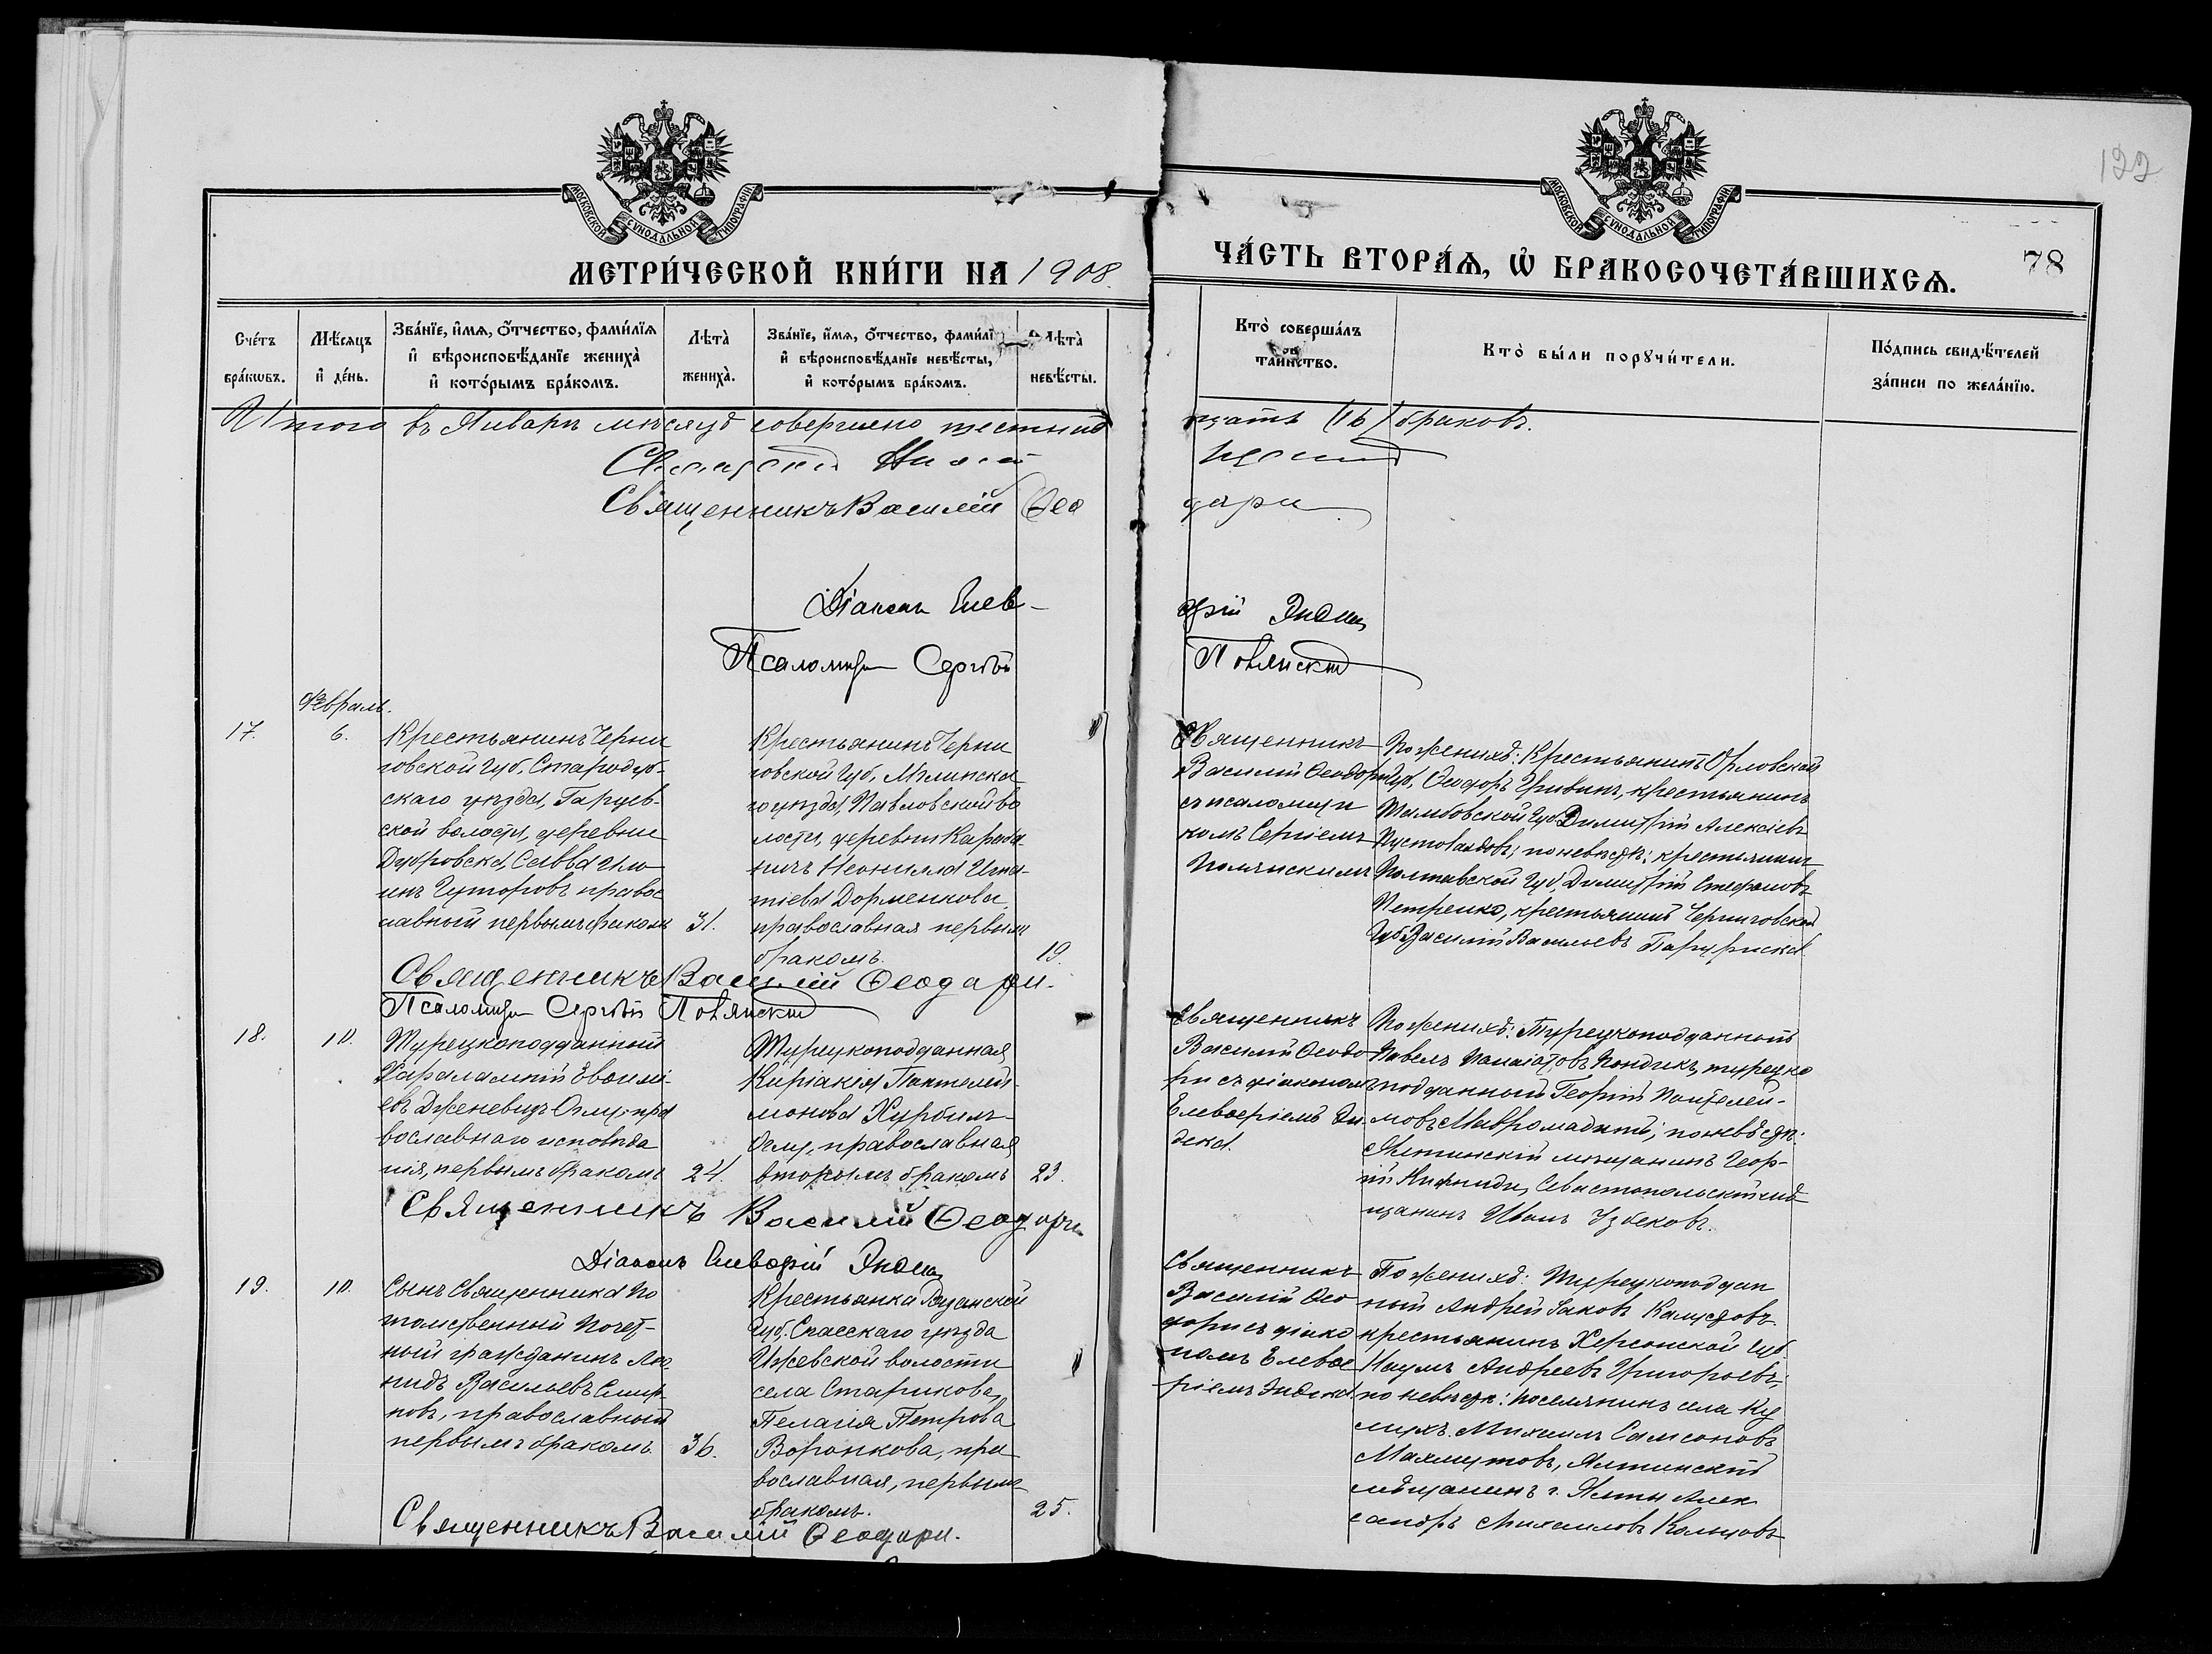 122
МОСКОВСКОЙ СѴНОДАЛЬНОЙ ТИПОГРАФІИ
МОСКОВСКОЙ СѴНОДАЛЬНОЙ ТИПОГРАФІИ
МЕТРИ́ЧЕСКОЙ КНИ́ГИ НА 1908.
ЧА́СТЬ ВТОРА́Ѧ, Ѡ҆ БРАКОСОЧЕТА́ВШИХСѦ.
78
Сче́тъ бра́кѡвъ.
Мѣ́сяцъ и҆ де́нь.
Зва́нїе, и҆́мѧ, ѻ҆́тчество, фами́лїѧ
и҆ вѣроисповѣ́данїе жениха̀
и҆ кото́рымъ бра́комъ.
Лѣта̀ жениха̀.
Зва́нїе, и҆́мѧ, ѻ҆́тчество, фами́лї
и҆ вѣроисповѣ́данїе невѣ́сты,
и҆ кото́рымъ бра́комъ.
Лѣта̀ невѣ́сты.
Кто̀ соверша́лъ
таинство.
Кто̀ бы́ли порꙋчи́тели.
По́дпись свидѣ́телей
за́писи по жела́нїю.
Итого въ Январѣ мѣсяцѣ совершено шестнад
цать (16) браковъ.
Священникъ Василій Ѳео
дори
Діаконъ Елев-
ѳерій Эндека
Псаломщ Сергѣй
Полянскій
Февраль.
17.
6.
Крестьянинъ Черни
говской губ, Стародуб-
скаго уѣзда, Гарцев-
ской волости, деревни
Дубровска, Савва Иль
инъ Гуторовъ правос
лавный первымъ бракомъ
31.
Крестьянинъ Черни
говской губ, Мглинска
го уѣзда, Павловской во
лости, деревни Караба
ничъ Неонилла Игна-
тіева Дорменкова
православная первымъ
бракомъ.
19.
Священникъ
Василій Ѳеодори
съ псаломщи
комъ Сергіемъ
Полянскимъ
По женихѣ: Крестьянинъ Орловской
губ, Ѳеодоръ Гривинъ, крестьянинъ
Тамбовской губ. Димитрій Алексѣевъ
Пустоваловъ; по невѣстѣ: крестьянинъ
Полтавской губ, Димитрій Стефановъ
Петренко, крестьянинъ Черниговской
губ Василій Васильевъ
Священникъ Василій Ѳеодори.
Псаломщ Сергѣй Полянскій
18.
10.
Турецкоподданный
Харалампій Евѳимі-
евъ Дженевидъ Оглу, пра
вославнаго исповѣда
нія, первымъ бракомъ
24.
Турецкоподданная
Киріакія Пантелей-
монова Хурбилъ-
Оглу, православная
вторымъ бракомъ
23.
Священникъ
Василій Ѳеодо
ри съ діакономъ
Елевѳеріемъ Эн
дека.
По женихѣ: Турецкоподданный
Павелъ Панаіотовъ Пондикъ, турецко
подданный Георгій Пантелей-
моновъ Мавромадитъ; по невѣстѣ:
Ялтинскій мѣщанинъ Геор-
гій Кифниди, Севастопольскій мѣ
щанинъ Иванъ Узбековъ.
Священникъ Василій Ѳеодори
Діаконъ Елевѳерій Эндека
19.
10.
Сынъ священника По
томственный Почет-
ный гражданинъ Лео
нидъ Васильевъ Смир
новъ, православный
первымъ бракомъ
36.
Крестьянка Рязанской
губ. Спасскаго уѣзда
Ижевской волости
села Старикова,
Пелагія Петрова
Воронкова, пра
вославная, первымъ
бракомъ.
25.
Священникъ
Василій Ѳео
дори съ діако
номъ Елевѳе
ріемъ Эндека.
По женихѣ: Турецкоподдан
ный Андрей Іаковъ Калустовъ
крестьянинъ Херсонской губ
Наумъ Андреевъ Григорьевъ;
по невѣстѣ: поселянинъ села Ку
Михаилъ Самсоновъ
Махмутовъ, Ялтинскій
мѣщанинъ г. Ялты Алек
сандръ Михаиловъ Кольцовъ
Священникъ Василій Ѳеодори.